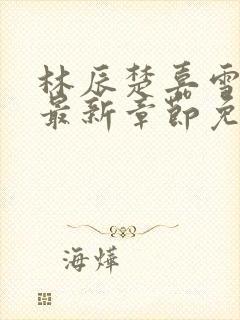 林辰楚嘉雪
最新章节免
海烨